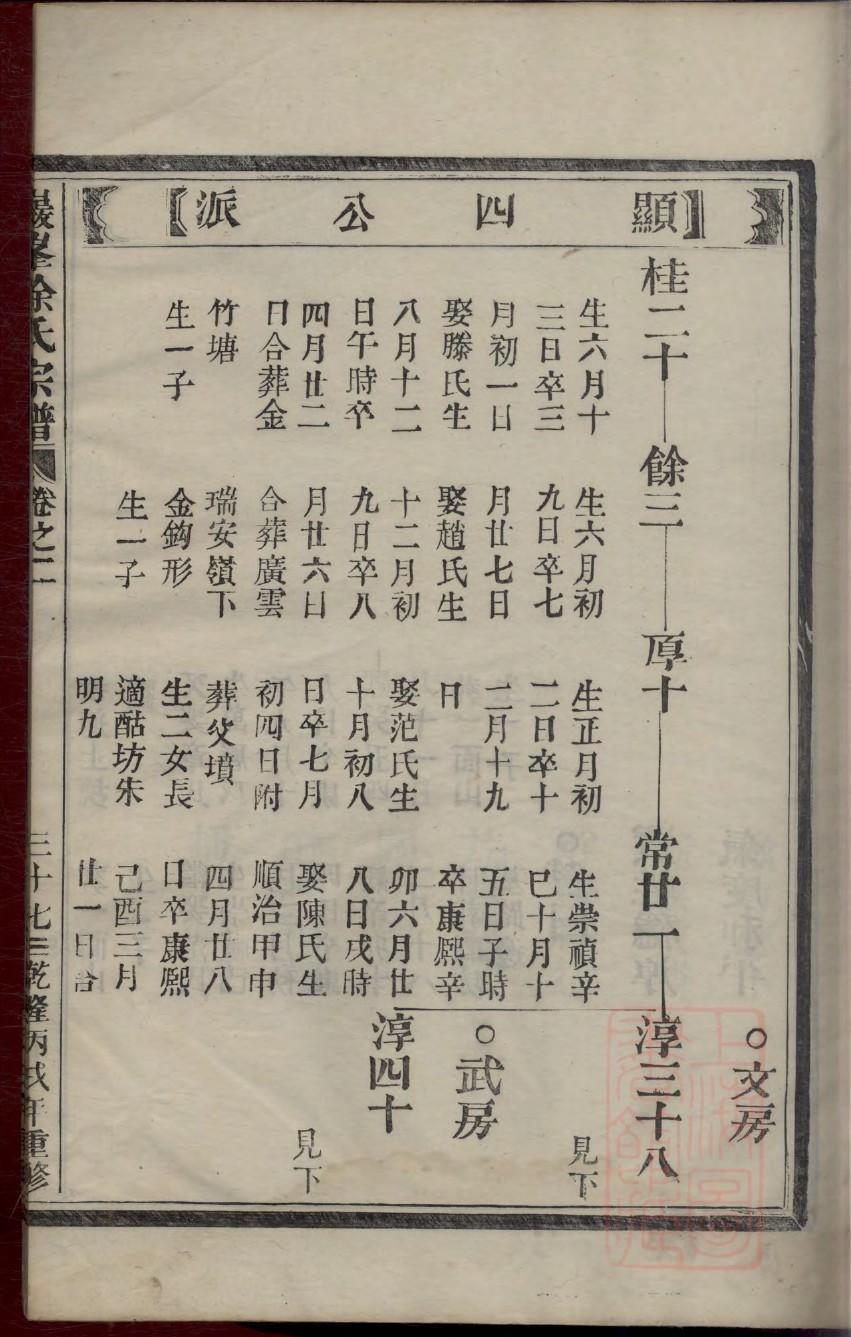 顯四公派
○文房
桂二十
餘三
厚十
常廿一
淳三十八
生六月十
三日卒三
月初一日
娶滕氏生
八月十二
日午時卒
四月廿二
日合葬金
竹塘
生一子
生六月初
九日卒七
月廿七日
娶趙氏生
十二月初
九日卒八
月廿六日
合葬廣雲
瑞安嶺下
金鈎形
生一子
生正月初
二日卒十
二月十九
日
娶范氏生
十月初八
日卒七月
初四日附
葬父墳
生二女長
適酤坊朱
明九
生崇禎辛
巳十月十
五日子時
卒康熙辛
卯六月廿
八日戌時
娶陳氏生
順治甲申
四月廿八
日卒康熙
己酉三月
廿一日合
見下
○武房
淳四十
見下
巖峯徐氏宗譜
卷之二
三十七
乾隆丙戌年重修